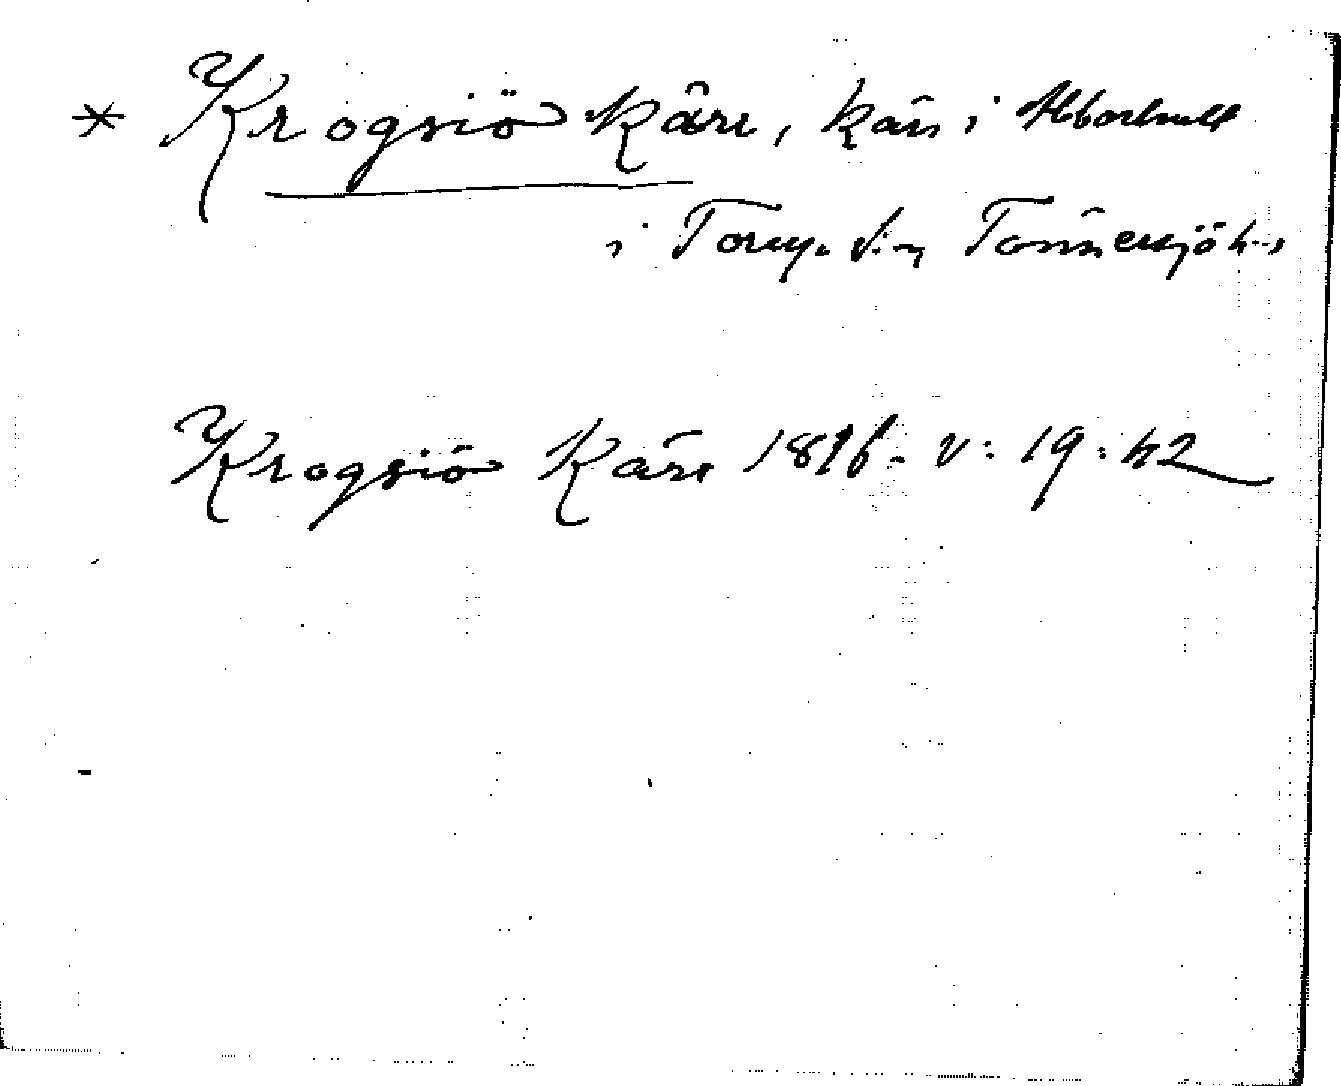 * Krogsiö Käre, kärr i Abborhult
i Torup s:n Tönnersjö h.
Krogsiö Käre 1816. V: 19: 42